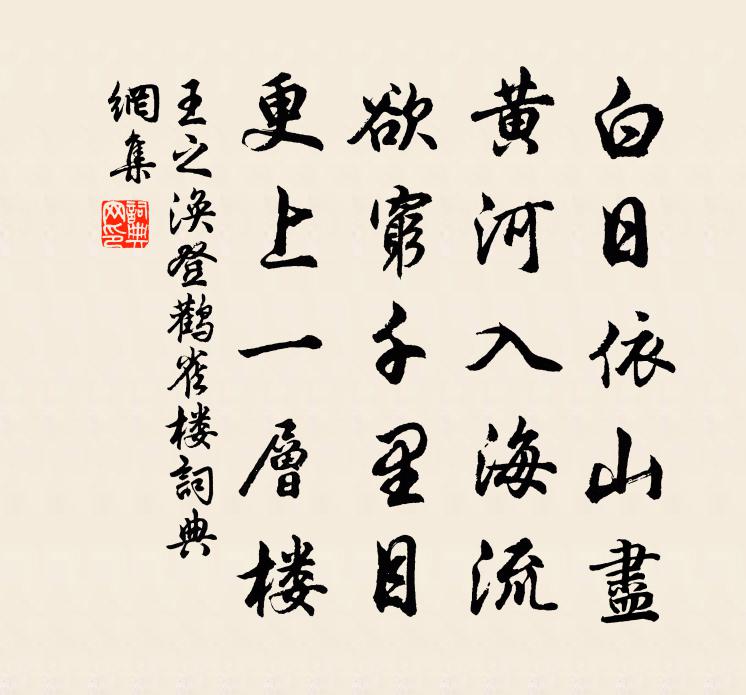 白日依山盡
黃河入海流
欲窮千里目
更上一層楼
王之渙登鸛雀楼詞典
網集
詞典
网印